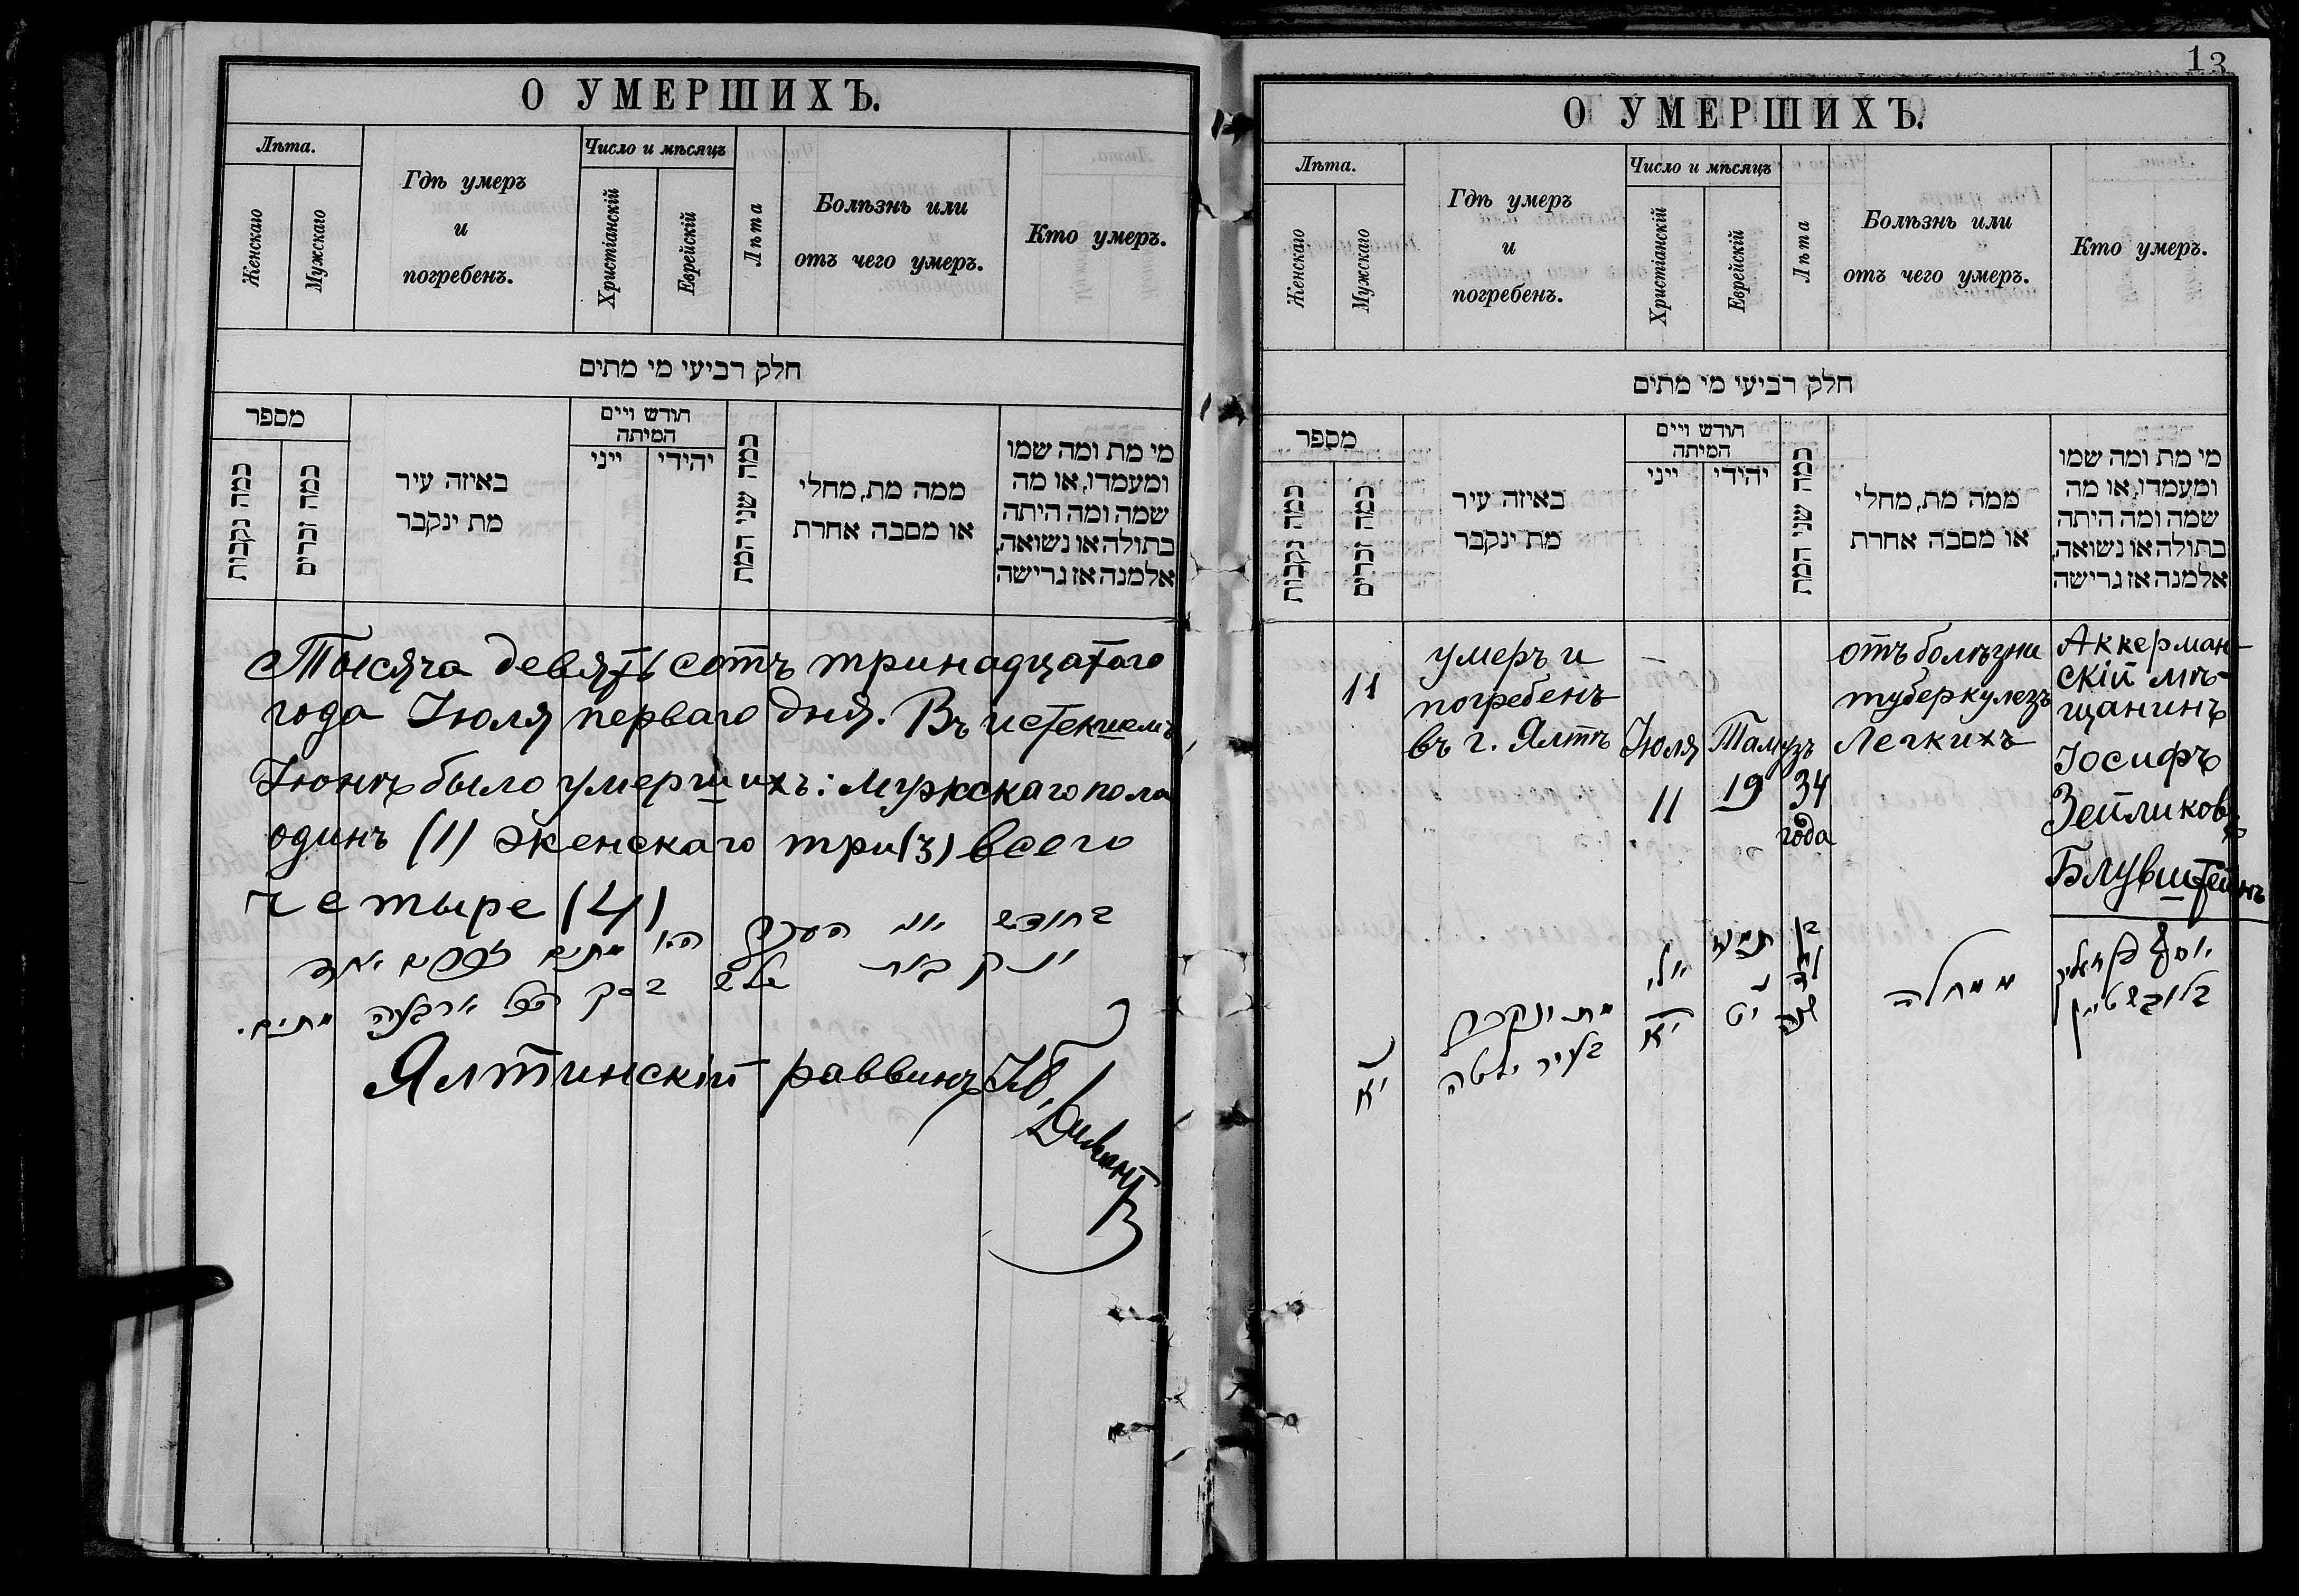 О УМЕРШИХЪ.
Лѣта.
Женскаго
Мужскаго
Гдѣ умеръ
и
погребенъ.
Число и мѣсяцъ
Христіанскій
Еврейскій
Лѣта
Болѣзнь или
отъ чего умеръ.
Кто умеръ.
חלק רביעי מי מתים
מספר
כמה נקבות
כמה זכרים
באיזה עיר
מת ינקבר
חודש ויים
המיתה
ייני
יהידי
כמה שני המת
ממה מת, מחלי
או מסבה אחרת
מי מת ומה שמו
ומעמדו, או מה
שמה ומה היתה
בתולה או נשואה,
אלמנה אז גרישה
Тысяча девять сотъ тринадцатаго
года Іюля перваго дня. Въ истекшемъ
Іюнѣ было умершихъ: мужскаго пола
одинъ (1) женскаго три (3) всего
четыре (4)
Ялтинскій раввинъ
13
О УМЕРШИХЪ.
Лѣта.
Женскаго
Мужскаго
Гдѣ умеръ
и
погребенъ.
Число и мѣсяцъ
Христіанскій
Еврейскій
Лѣта
Болѣзнь или
отъ чего умеръ.
Кто умеръ.
חלק רביעי מי מתים
מספר
כמה נקבות
כמה זכרים
באיזה עיר
מת ינקבר
חודש ויים
המיתה
ייני
יהידי
כמה שני המת
ממה מת, מחלי
או מסבה אחרת
מי מת ומה שמו
ומעמדו, או מה
שמה ומה היתה
בתולה או נשואה,
אלמנה אז גרישה
11
умеръ и
погребенъ
въ г. Ялтѣ
Іюля
11
Тамузъ
19
34
года
отъ болѣзни
туберкулезъ
Легкихъ
Аккерман-
скій мѣ-
щанинъ
Іосифъ
Зейликовъ
Блувштейнъ
יא
בעיר יאלטה
יולי
יא
תמוז
יט
בן
לד
שנה
ממחלה
יוסף
בלובשטיין